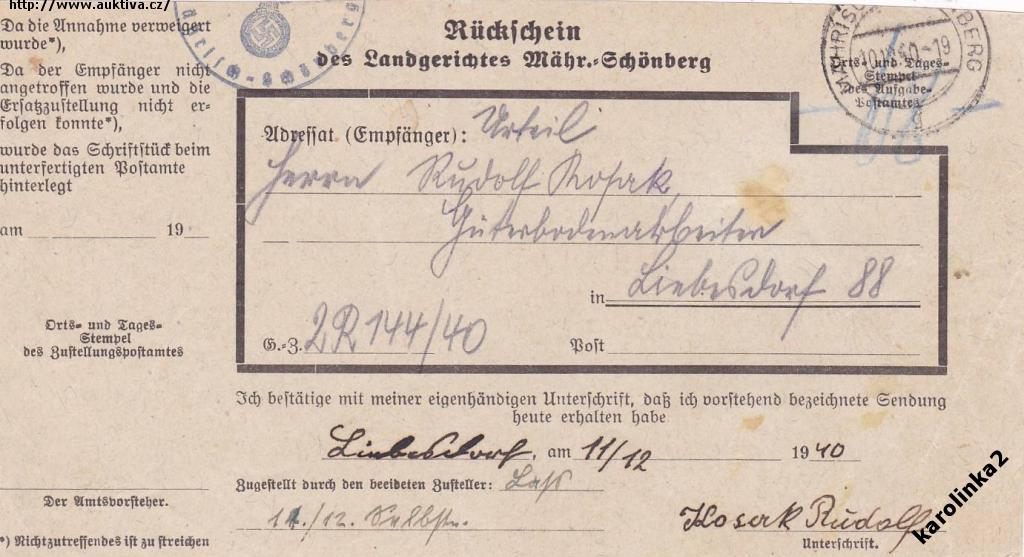 http://www.auktiva.cz/
Da die Annahme verweigert
wurde*),
Da der Empfänger nicht
angetroffen wurde und die
Ersatzzustellung nicht er-
folgen konnte*),
wurde das Schriftstück beim
unterfertigten Postamte
hinterlegt
am 19
Orts- und Tages-
Stempel
des Zustellungspostamtes
Der Amtsvorsteher.
*) Nichtzutreffendes ist zu streichen
Rückschein
des Landgerichtes Mähr.-Schönberg
Orts- und Tages-
Stempel
des Aufgabe-
Postamtes
Adressat (Empfänger): Urteil
Herrn Rudolf Kosak
Güterbodenarbeiter
in Liebesdorf 88
G.-Z. 2R144/40 Post
Ich bestätige mit meiner eigenhändigen Unterschrift, daß ich vorstehend bezeichnete Sendung
heute erhalten habe
Liebesdorf, am 11/12 1940
Zugestellt durch den beeideten Zusteller:
11./12. Selbst.
Kosak Rudolf
Unterschrift.
karolinka2